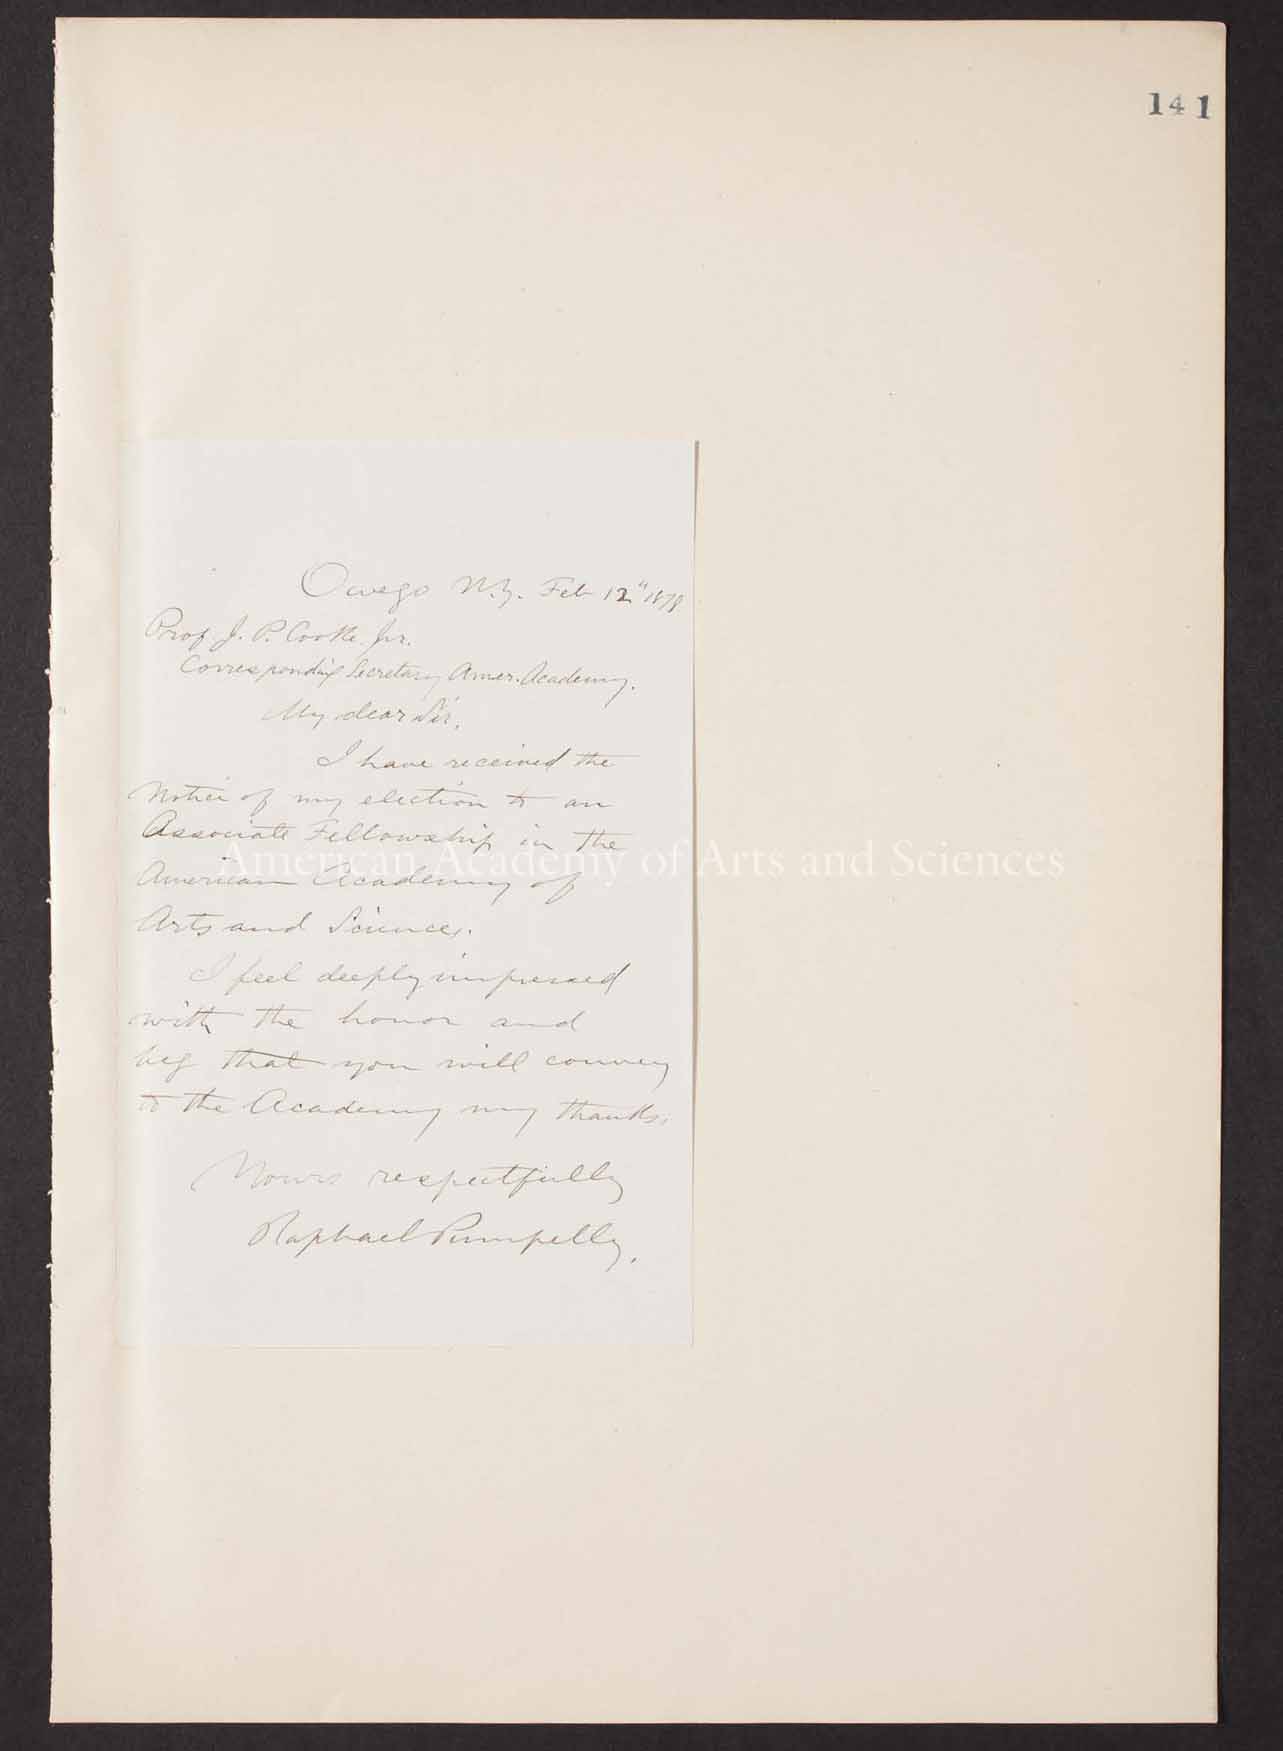 141
Owego N.Y. Feb 12" 1878
Prof J. P. Cooke Jr.
Corresponding Secretary Amer. Academy.
My dear Sir,
I have received the
Notice of my election to an
Associate Fellowship in the
American Academy of
Arts and Sciences.
American Academy of Arts and Sciences
I feel deeply impressed
with the honor and
beg that you will convey
to the Academy my thanks.
Yours respectfully
Raphael Pumpelly.